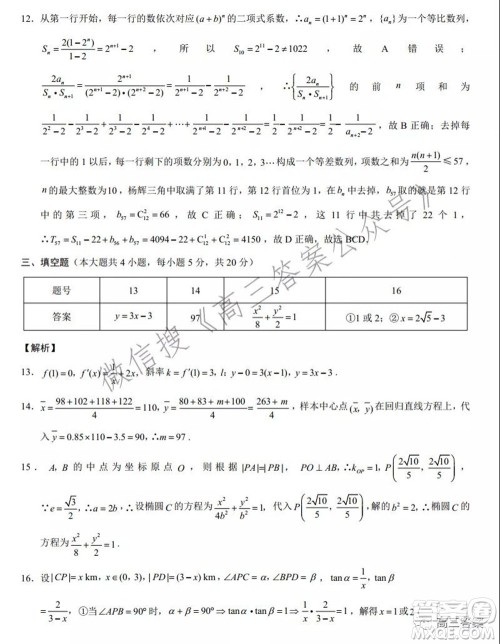 12. 从第一行开始，每一行的数依次对应(a+b)ⁿ的二项式系数，∴a_n=(1+1)ⁿ=2ⁿ，{a_n}为一个等比数列，
S_n=2(1-2ⁿ)/(1-2)=2ⁿ⁺¹-2，所以S_10=2¹¹-2≠1022，故A错误；
2a_n/(S_n·S_{n+1})=2ⁿ⁺¹/((2ⁿ⁺¹-2)·(2ⁿ⁺²-2))=1/(2ⁿ⁺¹-2)-1/(2ⁿ⁺²-2)，∴{2a_n/(S_n·S_{n+1})}的前n项和为
1/(2²-2)-1/(2³-2)+1/(2³-2)-1/(2⁴-2)+⋯+1/(2ⁿ⁺¹-2)-1/(2ⁿ⁺²-2)=1/(2²-2)-1/(2ⁿ⁺²-2)=1/2-1/(a_{n+2}-2)，故B正确；去掉每
一行中的1以后，每一行剩下的项数分别为0，1，2，3，⋯构成一个等差数列，项数之和为n(n+1)/2≤57，
n的最大整数为10，杨辉三角中取满了第11行，第12行首位为1，在b_n中去掉，b_57取的就是第12行
中的第三项，b_57=C₁₂²=66，故C正确；S_11=2¹²-2，这11行中共去掉了22个1，
∴T_57=S_11-22+b_56+b_57=4094-22+C₁₂¹+C₁₂²=4150，故D正确．故选BCD．
三、填空题（本大题共4小题，每小题5分，共20分）
题号 13 14 15 16
答案 y=3x-3 97 x²/8+y²/2=1 ①1或2；②x=2√5-3
【解析】
13．f(1)=0，f′(x)=1/x+2x，斜率k=f′(1)=3，l：y-0=3(x-1)，y=3x-3．
14．x̄=(98+102+118+122)/4=110，ȳ=(80+83+84+m+16)/4=(263+m)/4，样本中心点(x̄，ȳ)在回归直线方程上，代
入ȳ=0.85×110-3.5=90，∴m=97．
15．A，B的中点为坐标原点O，则根据|PA|=|PB|，PO⊥AB，∴k_OP=1，P(2√10/5，2√10/5)，
∵e=√3/2，∴a=2b，设椭圆C的方程为x²/4b²+y²/b²=1，代入P(2√10/5，2√10/5)，解的b²=2，∴椭圆C
的方程为x²/8+y²/2=1．
16．设|CP|=x km，x∈(0，3)，|PD|=(3-x)km，∠APC=α，∠BPD=β，tanα=1/x，tanβ
=2/(3-x)，①当∠APB=90°时，α+β=90°⇒tanα·tanβ=1⇒1/x·2/(3-x)=1，解得x=1或2
微信搜《高三答案公众号》
高三答案